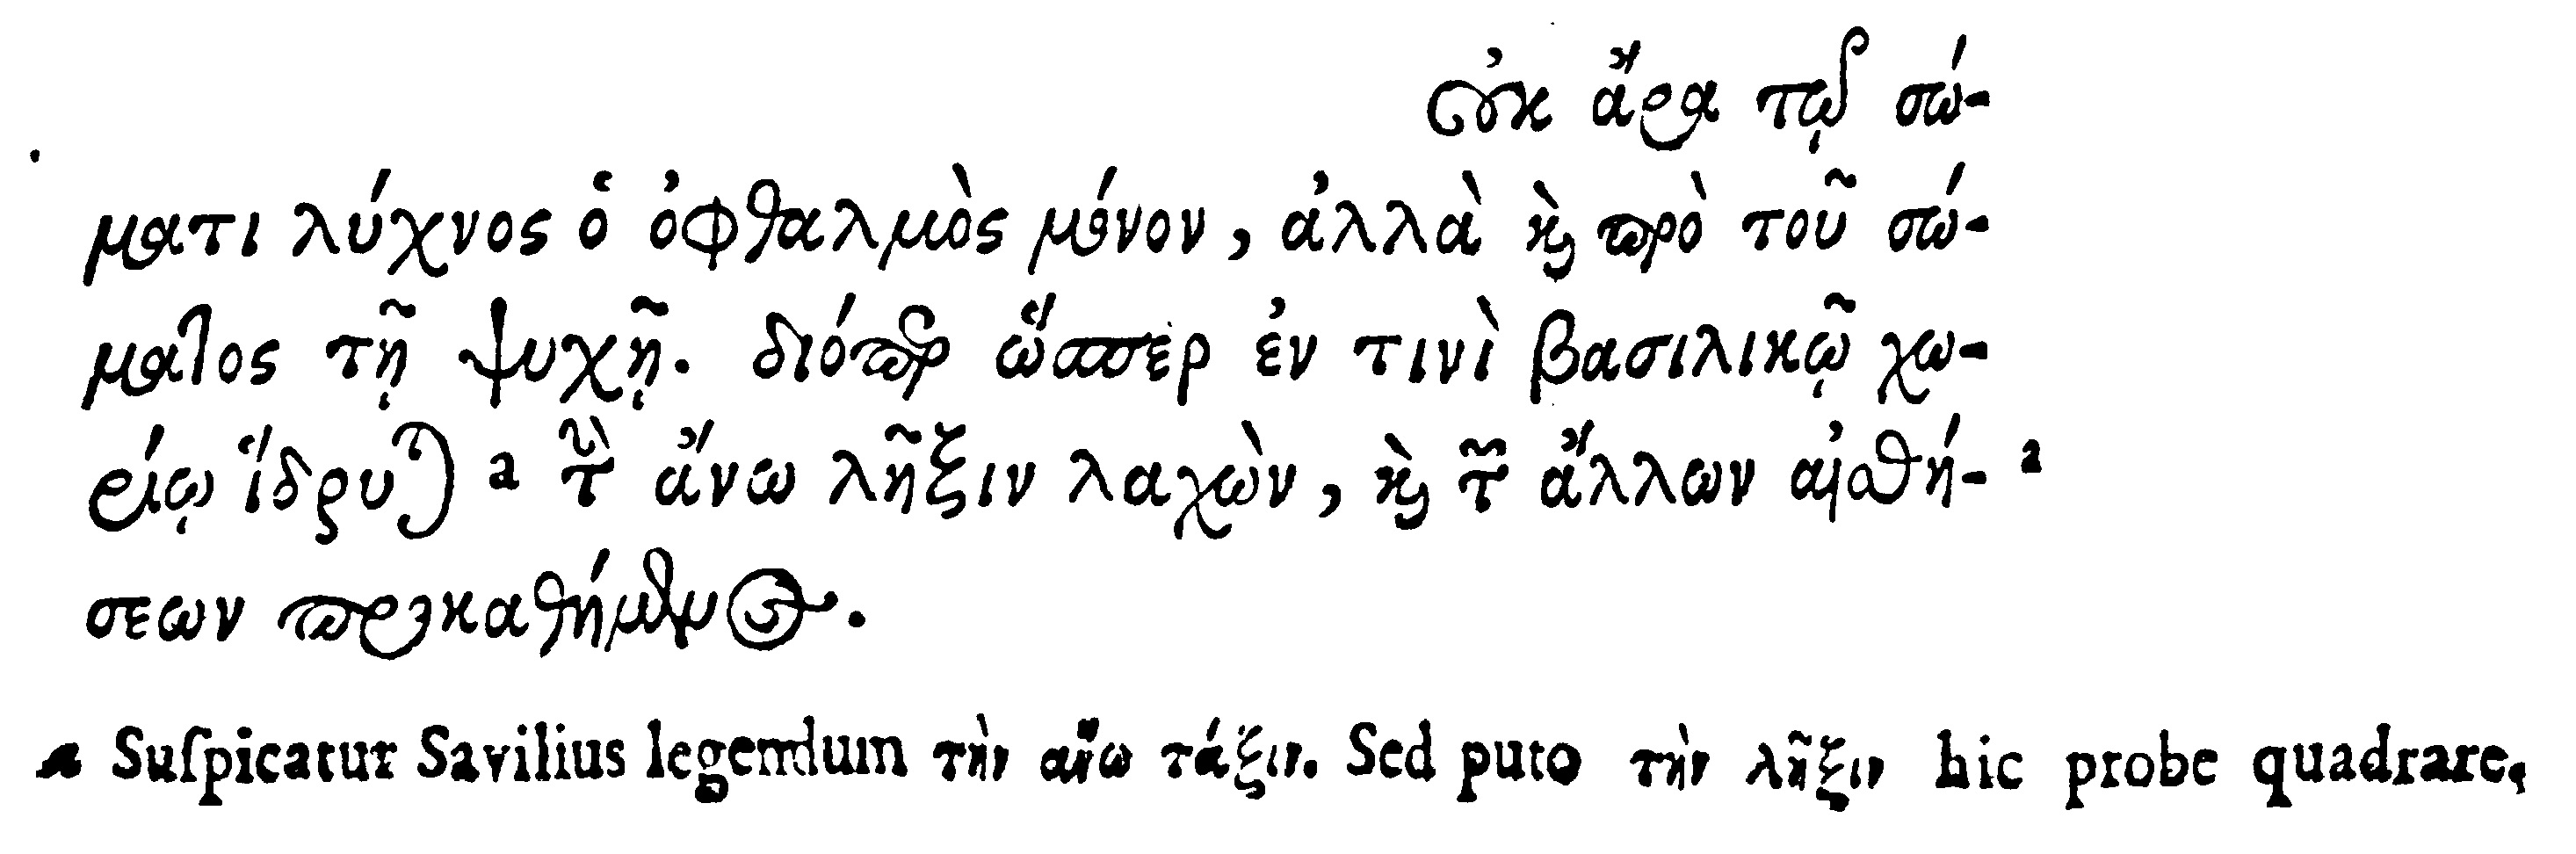 οὐκ ἄρα τῷ σώ-
ματι λύχνος ὁ ὀφθαλμὸς μόνον, ἀλλὰ ϗ̀ πρὸ τοῦ σώ-
ματος τῇ ψυχῇ. διόπερ ὥσπερ ἐν τινὶ βασιλικῷ χω-
ρίῳ ἵδρυται a τὴν ἄνω λῆξιν λαχὼν, ϗ̀ τῶν ἄλλων αἰσθή- a
σεων προκαθήμενος.
a Suſpicatur Savilius legendum τὴν ἄνω τάξιν. Sed puto τὴν λῆξιν hic probe quadrare.